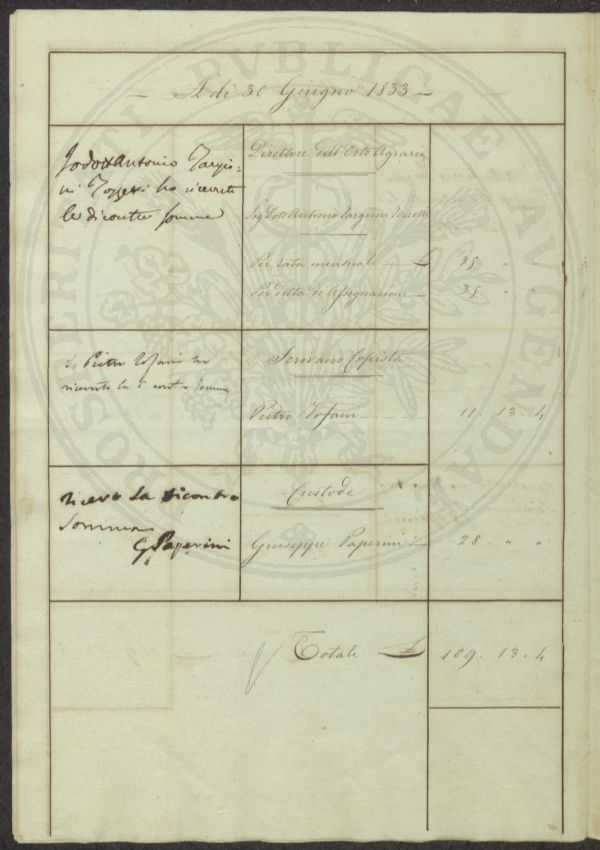 A di 30 Giugno 1833
Io Dott Antonio Targio=
ni Tozzetti ho ricevuto
le dicontro somme
Direttore dell'Orto Agrario
Sig Dott Antonio Targioni Tozzetti
Per rata mensuale £ 35 " "
Per detta di Assegnazione 35 " "
Io Pietro Tofani ho
ricevuto la d contro somma
Scrivano Copista
Pietro Tofani 11. 13. 4
ricevo La dicontro
Somma
G Paperini
Custode
Giuseppe Paperini 28 " "
Totale £ 109. 13. 4
PUBLICAE
AUGENDAE
PROSPERITATI